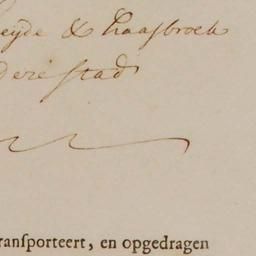 eyde & Haasbroek
dezeſtad
ranſporteert, en opgedragen